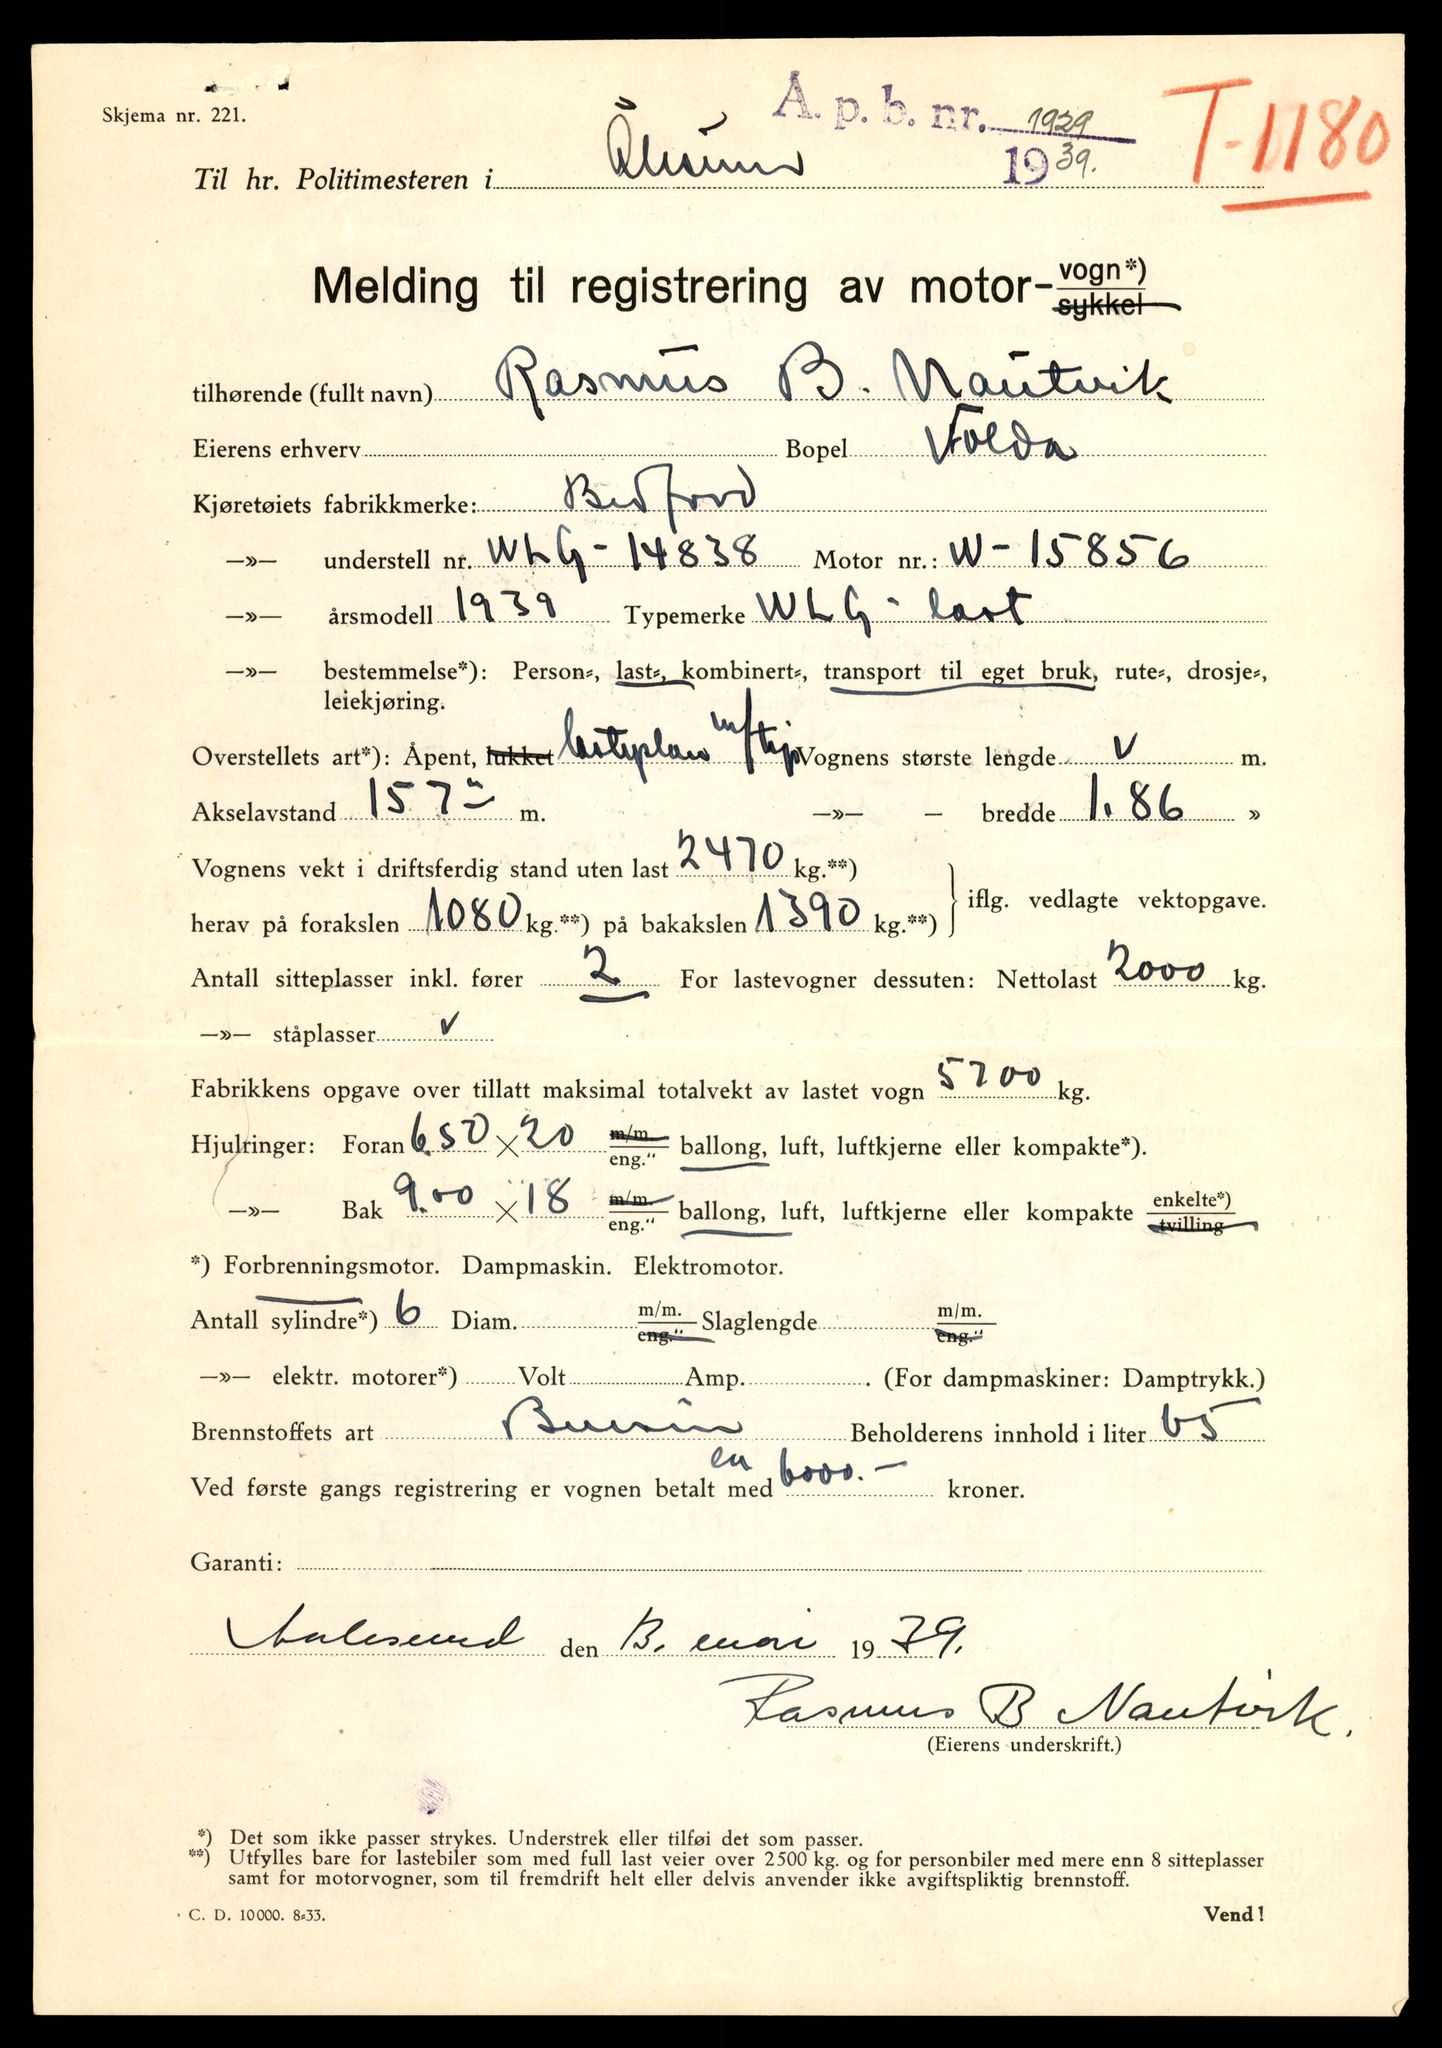 Skjema nr. 221.
A. p. b. nr. 1929
1939.
T-1180
Til hr. Politimesteren i Ålesund
Melding til registrering av motor- vogn*)
sykkel
tilhørende (fullt navn) Rasmus B. Nautvik
Eierens erhverv Bopel Volda
Kjøretøiets fabrikkmerke: Bedford
—»— understell nr. WLG - 14838 Motor nr.: W - 15856
—»— årsmodell 1939 Typemerke WLG - last
—»— bestemmelse*): Person-, last-, kombinert-, transport til eget bruk, rute-, drosje-,
leiekjøring.
Overstellets art*): Åpent, lukket lasteplan m/tip Vognens største lengde √ m.
Akselavstand 157" m. —»— — bredde 1.86 »
Vognens vekt i driftsferdig stand uten last 2470 kg.**)
herav på forakslen 1080 kg.**) på bakakslen 1390 kg.**) iflg. vedlagte vektopgave.
Antall sitteplasser inkl. fører 2 For lastevogner dessuten: Nettolast 2000 kg.
—»— ståplasser √
Fabrikkens opgave over tillatt maksimal totalvekt av lastet vogn 5700 kg.
Hjulringer: Foran 6.50 × 20 m/m. eng." ballong, luft, luftkjerne eller kompakte*).
—»— Bak 9.00 × 18 m/m. eng." ballong, luft, luftkjerne eller kompakte enkelte*) tvilling
*) Forbrenningsmotor. Dampmaskin. Elektromotor.
Antall sylindre*) 6 Diam. m/m. eng." Slaglengde m/m. eng."
—»— elektr. motorer*) Volt Amp. . (For dampmaskiner: Damptrykk.)
Brennstoffets art Bensin Beholderens innhold i liter 65
Ved første gangs registrering er vognen betalt med ca 6000.- kroner.
Garanti:
Aalesund den 13. mai 1939.
Rasmus B Nautvik.
(Eierens underskrift.)
*) Det som ikke passer strykes. Understrek eller tilføi det som passer.
**) Utfylles bare for lastebiler som med full last veier over 2500 kg. og for personbiler med mere enn 8 sitteplasser
samt for motorvogner, som til fremdrift helt eller delvis anvender ikke avgiftspliktig brennstoff.
C. D. 10000. 8-33.
Vend!